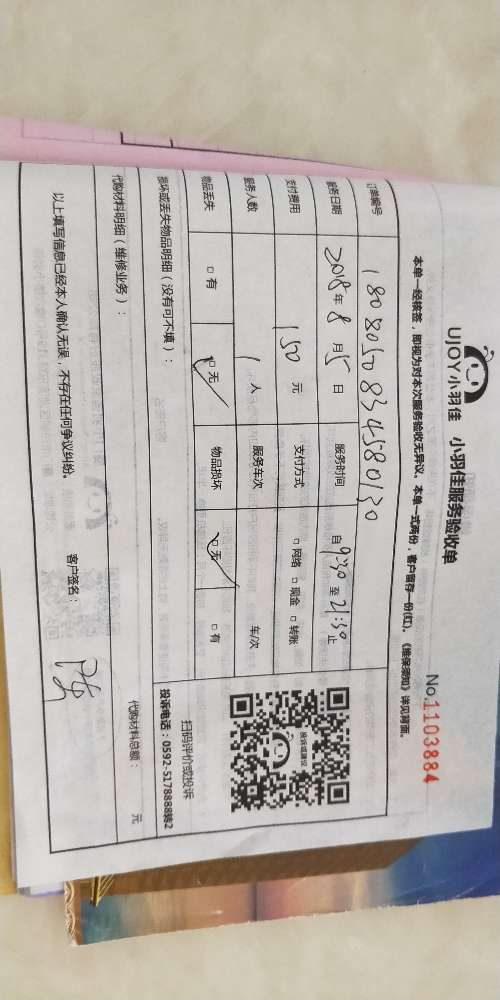 UJOY小羽佳 小羽佳服务验收单
No.1103884
本单一经核签，即视为对本次服务验收无异议。本单一式两份，客户留存一份(红)。《维保须知》详见背面。
订单编号 180805083458030
服务日期 2018年8月5日 服务时间 自9:30至21:30止
支付费用 150元 支付方式 □网络 □现金 □转账
服务人数 1人 服务车次 车/次
物品丢失 □有 □无 物品损坏 □无 □有
损坏或丢失物品明细（没有可不填）：
代购材料明细（维修业务）： 代购材料总额： 元
以上填写信息已经本人确认无误，不存在任何争议纠纷。 客户签名：
投诉或建议
扫码评价或投诉
投诉电话：0592-5178888转2